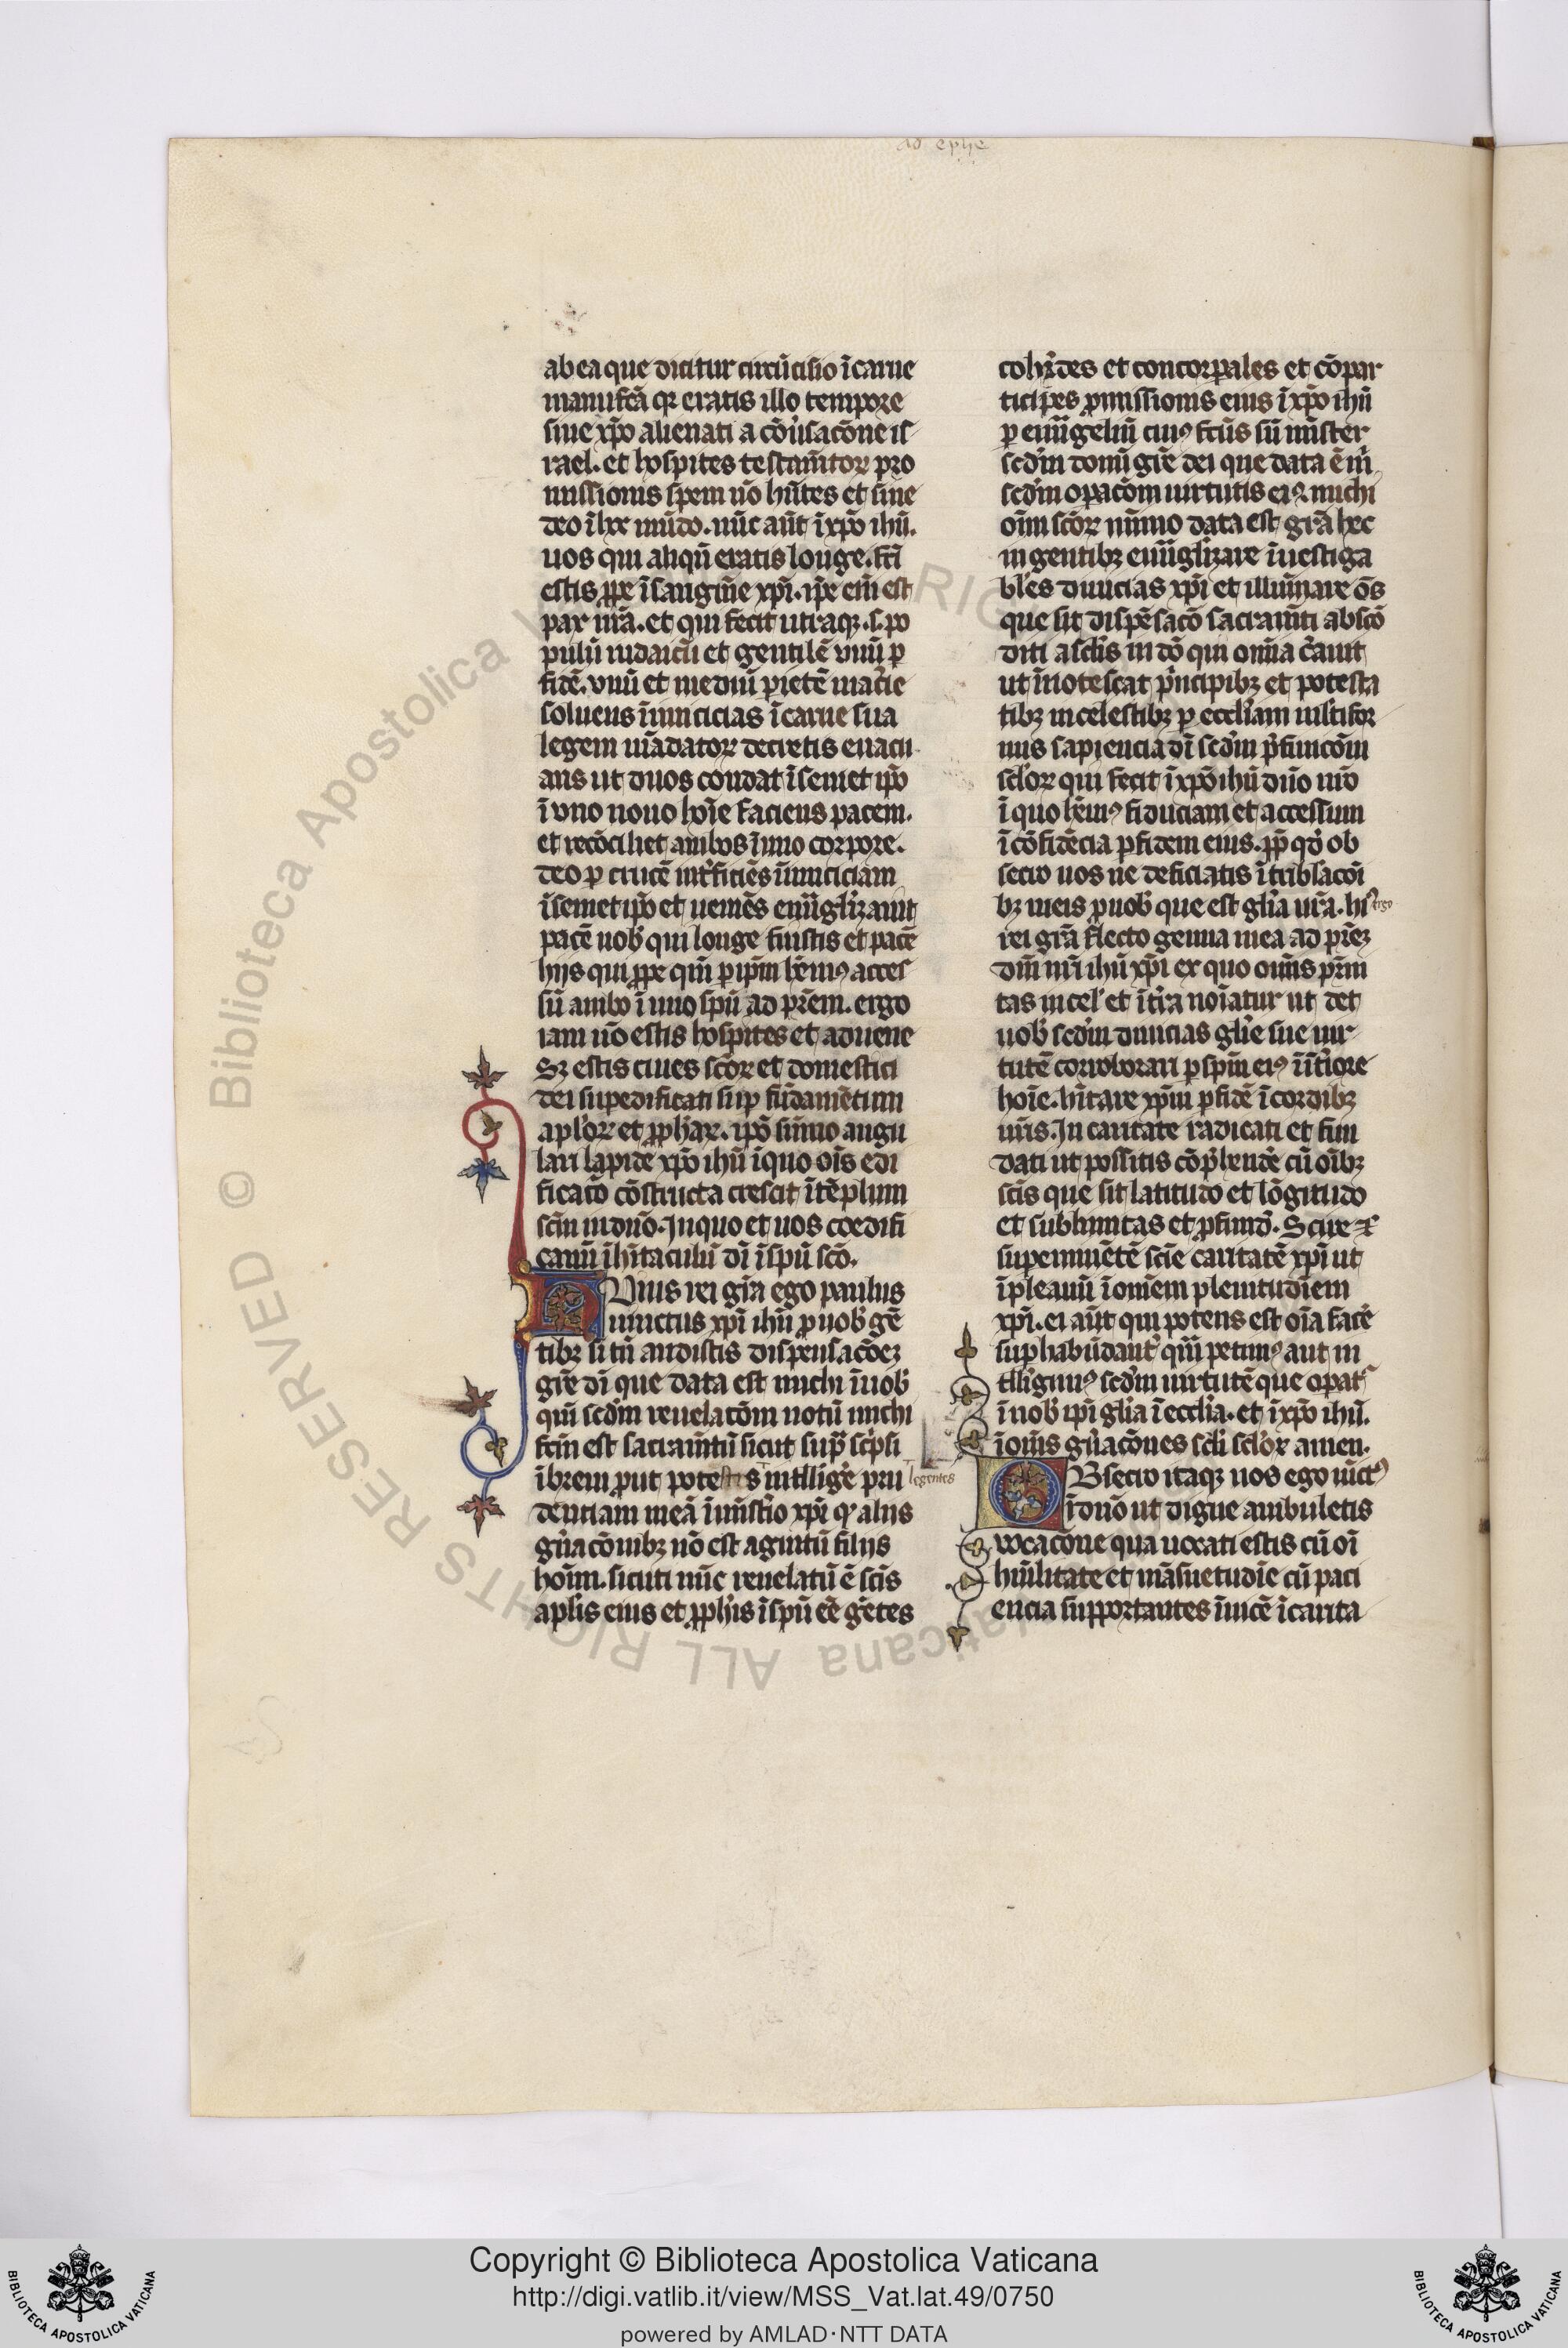 ad ephe
ab ea que dicitur circūcisio ī carne
manufc̄a qr eratis illo tempore
sine xp̄o alienati a cōuˀsacōne is
rael. et hospites testam̄tor pro
missionis spem nō hn̄tes et sine
deo ī hoc mūdo. nūc aūt ī xp̄o ihū.
uos qui aliqn̄ eratis longe. fc̄i
estis ꝓpe ī sanguīe xp̄i. ip̄e em̄ est
pax nr̄a. et qui fecit utraqꝫ .s. po
pulū iudaicū et gentilē vnū ꝑ
fidē. vnū et mediū ꝑietē mac̄ie
soluens īimicicias ī carne sua
legem mādatoꝝ decretis euacu
ans ut duos condat ī semet ip̄o
ī vno nouo hoīe faciens pacem.
et recōciliet ambos ī uno corpore.
deo ꝑ crucē int̄ficiēs īimiciciam
ī semet ip̄o et ueniēs euūglizauit
pacē uob̄ qui longe fuistis et pacē
hijs qui ꝓpe qm̄ ꝑ ip̄m hēmꝰ acces
sū ambo ī uno spū ad prēm. ergo
iam nō estis hospites et aduene
Sꝫ estis ciues sc̄oꝝ et domestici
dei supedificati suꝑ fūdamētum
aploꝝ et ꝓpharꝝ. ip̄o sūmo angu
lari lapide xp̄o ihū ī quo oīs edi
ficatō cōstructa crescit ī tēplum
sc̄m in dn̄o. In quo et uos coedifi
camī ī hītaculū dī ī spū sc̄o.
Huius rei grā ego paulus
uinctus xp̄i ihū ꝓ uob̄ gē
tibꝫ si tn̄ audistis dispensacōeꝫ
grē dī que data est michi ī uob̄
qm̄ scdm̄ reuelacōm notū michi
fcm̄ est sacram̄tū sicut sup̄ scˀpsi
ī breui ꝓut potestis intllige prū legentes
dentiam meā ī mistˀio xp̄i qͩ alijs
gn̄acōnibꝫ nō est agnitū filijs
hoīm. sicuti nūc reuelatū ē sc̄is
aplis eius et ꝓphis ī spū eē gētes
cohr̄des et concorꝑales et cōpar
ticipes ꝓmissionis eius ī xp̄o ihū
ꝑ euūgeliū cuiꝰ fcūs sū mīster
scdm̄ donū grē dei que data ē m̄
scdm̄ oꝑacōm uirtutis eiꝰ. michi
oīm sc̄oꝝ mīmo data est grā hec
in gentibꝫ euūglizare īuestiga
bles diuicias xp̄i et illumīare ōs
que sit dispēsacō sacram̄ti absco
diti a sclis in dō qui omīa cˀauit
ut īnotescat pˀncipibꝫ et potesta
tibꝫ in celestibꝫ ꝑ eccliam ml̄tifor
mis sapiencia dī scdm̄ pˀfinicōm
scloꝝ qui fecit ī xp̄o ihū dn̄o nr̄o
ī quo hēmꝰ fiduciam et accessum
ī cōfidēcia ꝑ fidem eius. ꝓp̄ qd̄ ob
secro uos ne deficiatis ī tribl̄acōi
bꝫ meis ꝓ uob̄ que est glia ur̄a. hiˀ ergo
rei grā flecto genua mea ad prēꝫ
dn̄i nr̄i ihū xp̄i ex quo omīs prn̄i
tas in cel̄ et ī tr̄a noīatur ut det
uob̄ scdm̄ diuicias glie sue uir
tutē corroborari ꝑ spm̄ eiꝰ ī ītˀiore
hoīe. hītare xp̄m ꝑ fidē ī cordibꝫ
ur̄is. In caritate radicati et fun
dati ut possitis cōpˀhendē cū oībꝫ
sc̄is que sit latitudo et lōgitudo
et sublimitas et ꝓfund̄. Scire et
supeminētē scīe caritatē xp̄i ut
īpleamī ī omēm plenitudīem
xp̄i. ei aūt qui potens est oīa facē
suꝑhabūdant̄ qm̄ petimꝰ aut in
tlligimꝰ scdm̄ uirtutē que oꝑatˀ
ī nob̄ ipī glia ī ecclia. et ī xp̄o ihū.
ī omīs gn̄acōnes scli scloꝝ amen.
Obsecro itaqꝫ uos ego uīctꝰ
ī dn̄o ut digne ambuletis
uocacōne qua uocati estis cū oī
hūilitate et māsuetudīe cū paci
encia supportantes īuicē ī carita
Copyright © Biblioteca Apostolica Vaticana
http://digi.vatlib.it/view/MSS_Vat.lat.49/0750
powered by AMLAD·NTT DATA
BIBLIOTECA APOSTOLICA VATICANA
BIBLIOTECA APOSTOLICA VATICANA
© Biblioteca Apostolica Vaticana ALL RIGHTS RESERVED